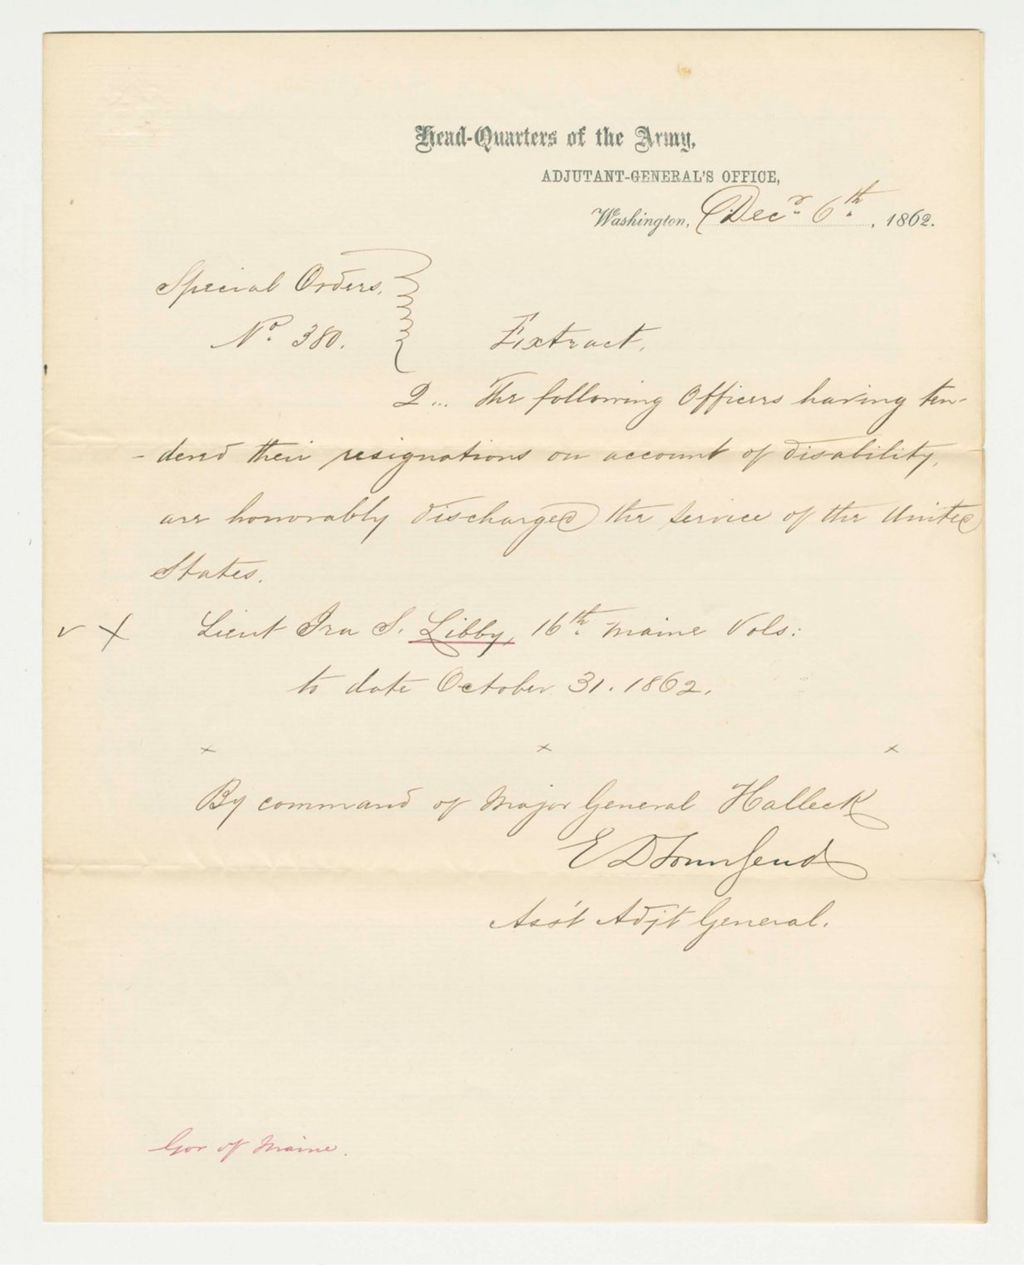 Head-Quarters of the Army,
ADJUTANT-GENERAL'S OFFICE,
Washington, Decr 6th, 1862.
Special Orders,
No. 380.
Extract.
2... The following Officers having ten-
-dered their resignations on account of disability,
are honorably discharged the service of the United
States.
✓ X Lieut Ira S. Libby, 16th Maine Vols:
to date October 31. 1862.
x x x
By command of Major General Halleck
E D Townsend
Ass't Adjt General.
Gov of Maine.